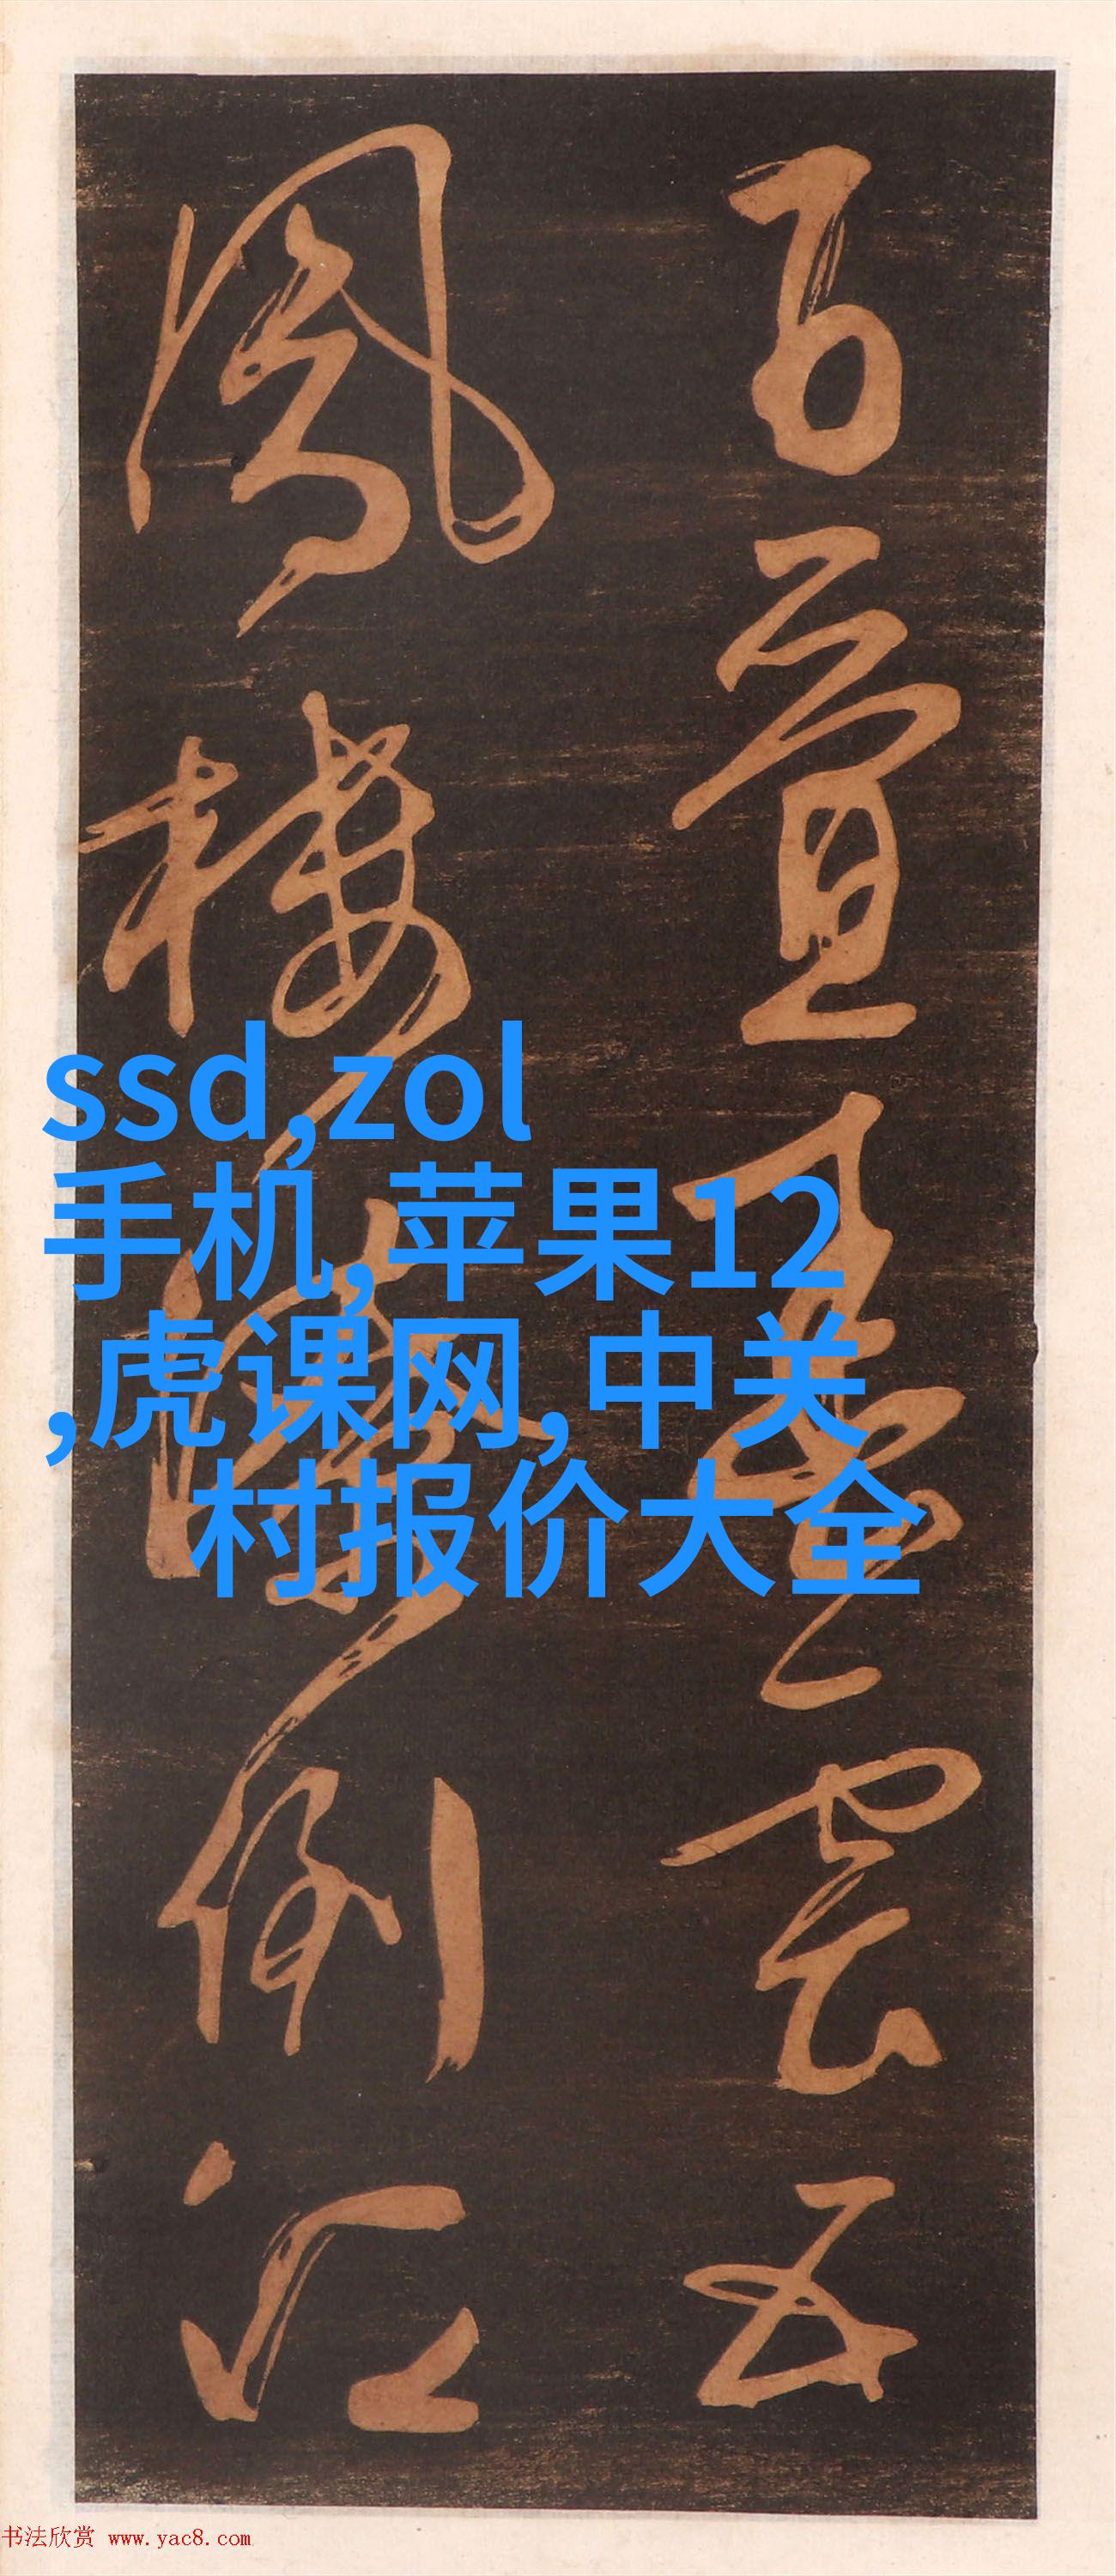 百雲五
鳳樓倒江
ssd,zol
手机,苹果12
,虎课网,中关
村报价大全
书法欣赏 www.yac8.com